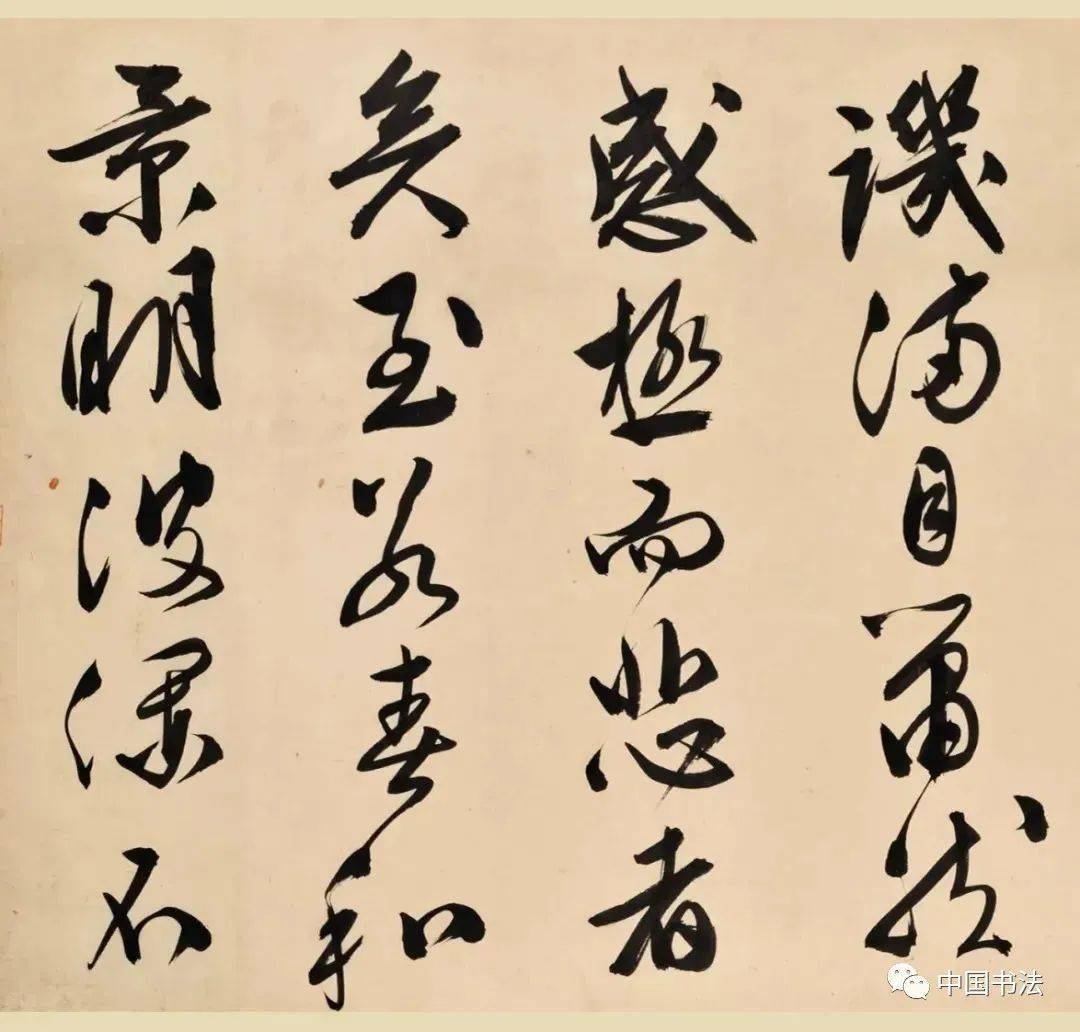 譏滿目蕭然
感極而悲者
矣至若春和
景明波瀾不
中国书法